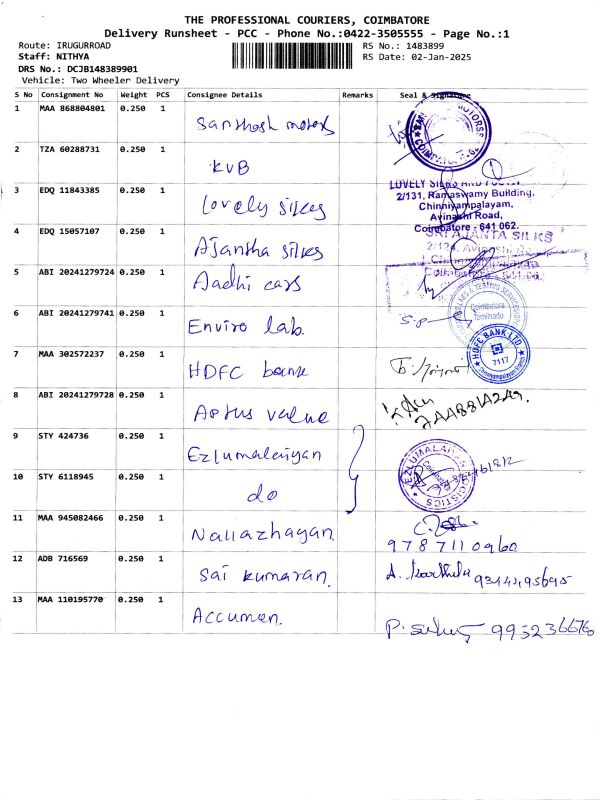 THE PROFESSIONAL COURIERS, COIMBATORE
Delivery Runsheet - PCC - Phone No.:0422-3505555 - Page No.:1
Route: IRUGURROAD RS No.: 1483899
Staff: NITHYA RS Date: 02-Jan-2025
DRS No.: DCJB148389901
Vehicle: Two Wheeler Delivery
S No Consignment No Weight PCS Consignee Details Remarks Seal & Signature
1 MAA 868804801 0.250 1 Santhosh motors
COIMBATORE
2 TZA 60288731 0.250 1 KVB
3 EDQ 11843385 0.250 1 Lovely silkes
LOVELY SILKS AND
2/131, Ramaswamy Building,
Chinniyampalayam,
Avinashi Road,
Coimbatore - 641 062.
4 EDQ 15057107 0.250 1 Ajantha silkes
SRI AJANTA SILKS
5 ABI 20241279724 0.250 1 Aadhi cars
6 ABI 20241279741 0.250 1 Enviro lab.
Coimbatore
Tamilnadu
S.P
7 MAA 302572237 0.250 1 HDFC bank
HDFC BANK LTD
7117
Chinniyampalayam Branch
8 ABI 20241279728 0.250 1 Aptus value
9 STY 424736 0.250 1 Ezlumalaiyan
EZLUMALAIYAN LOGISTICS
10 STY 6118945 0.250 1 do
11 MAA 945082466 0.250 1 Nallazhagan
9787110960
12 ADB 716569 0.250 1 Sai kumaran.
A. Karthik 9344495695
13 MAA 110195770 0.250 1 Accumen.